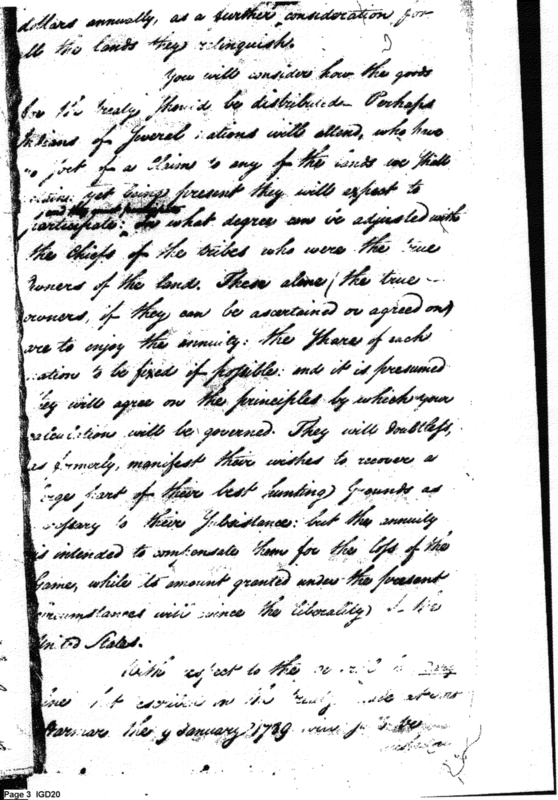 dollars annually, as a further consideration for
all the lands they relinquish.
You will consider how the goods
for the treaty should be distributed. Perhaps
Indians of several nations will attend, who have
no sort of a claim to any of the lands we shall
retain: yet being present they will expect to
and they must participate
participate: In what degree can be adjusted with
the Chiefs of the tribes who were the true
owners of the land. These alone (the true
owners, if they can be ascertained or agreed on)
are to enjoy the annuity: the share of each
nation to be fixed if possible: and it is presumed
they will agree on the principles by which your
calculation will be governed. They will doubtless,
as formerly, manifest their wishes to recover a
large part of their best hunting Grounds as
necessary to their Subsistance: but the annuity
is intended to compensate them for the loss of the
Game, while its amount granted under the present
circumstances will evince the liberality of the
United States.
With respect to the
line in the treaty made at
Harmar the 9 January 1789
Page 3 IGD20